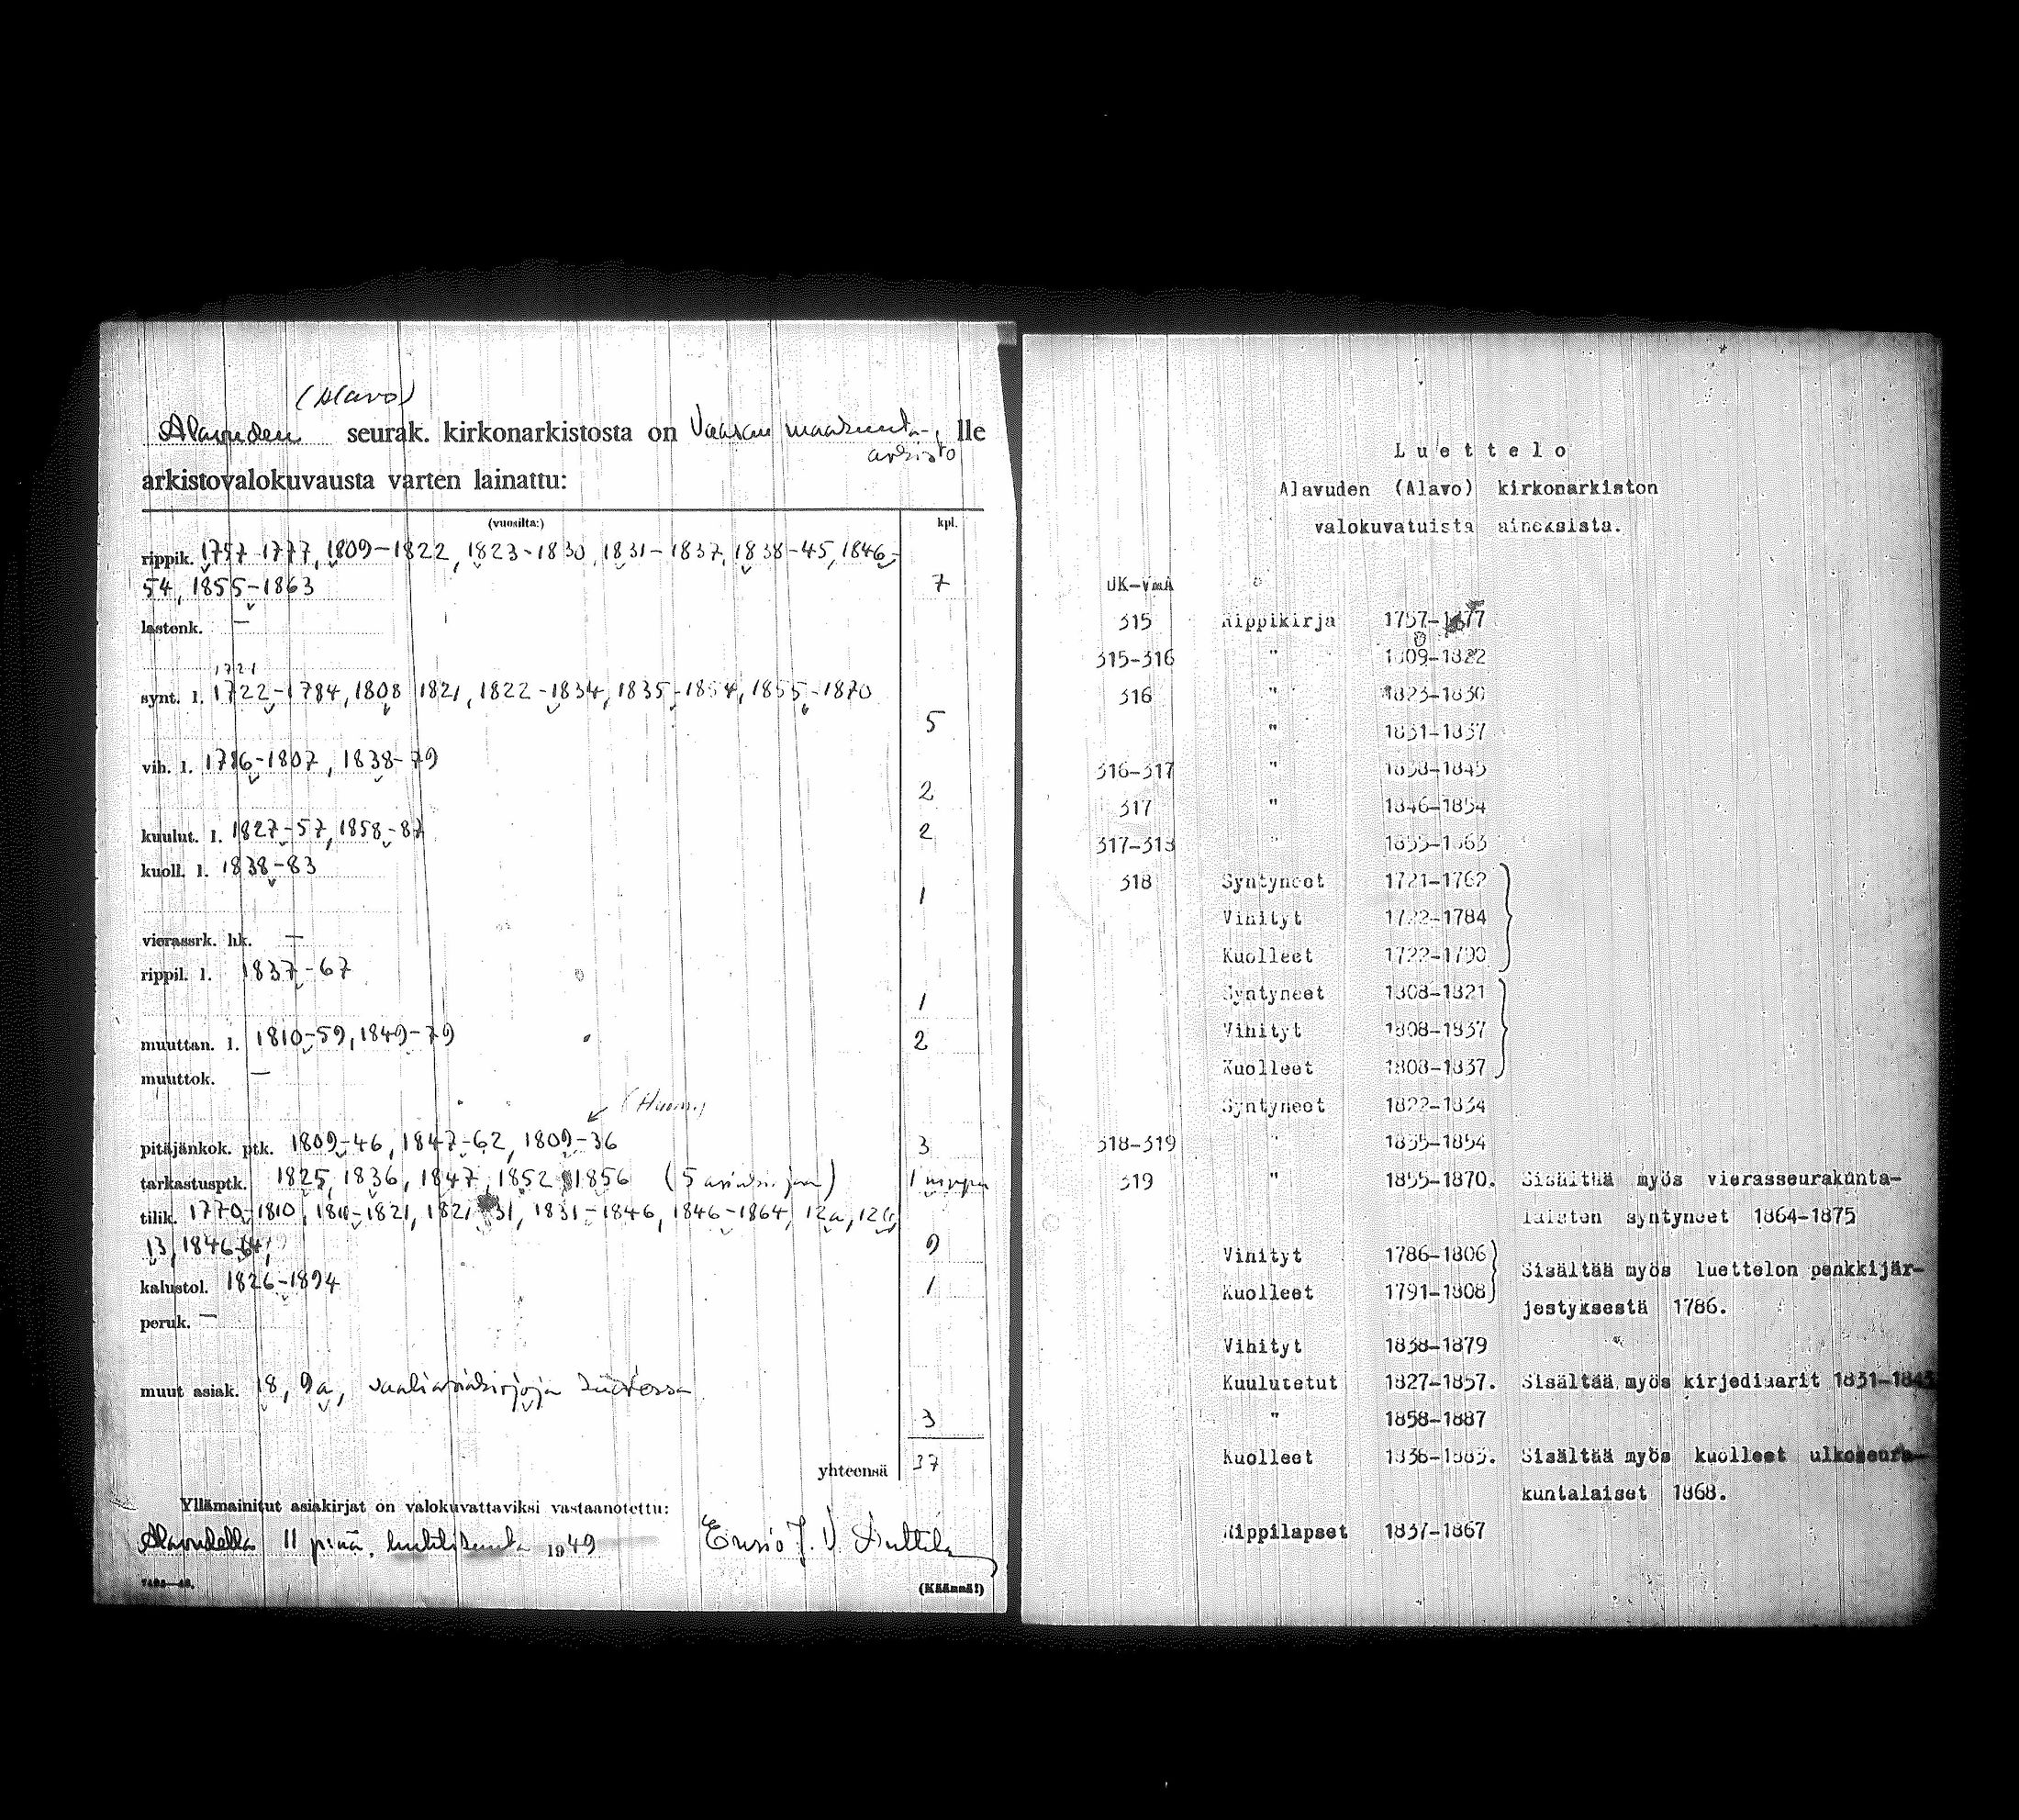 (Alavo)
Alavuden seurak. kirkonarkistosta on Vaasan maakunta- lle
arkisto
arkistovalokuvausta varten lainattu:
(vuosilta:) kpl.
rippik. 1757-1777, 1809-1822, 1823-1830, 1831-1837, 1838-45, 1846-
54, 1855-1863 7
lastenk. —
1721
synt. l. 1722-1784, 1808 1821, 1822-1834, 1835-1854, 1855-1870
5
vih. l. 1786-1807, 1838-79
2
kuulut. l. 1827-57, 1858-87 2
kuoll. l. 1838-83
1
vierassrk. hk. —
rippil. l. 1837-67
1
muuttan. l. 1810-59, 1849-79 2
muuttok. —
(Huom.)
pitäjänkok. ptk. 1809-46, 1847-62, 1809-36 3
tarkastusptk. 1825, 1836, 1847, 1852 1856 (5 asiakirjaa) 1
tilik. 1770-1810, 1810-1821, 1821-31, 1831-1846, 1846-1864, 12a, 12b,
13, 1846-64, 9
kalustol. 1826-1894 1
peruk. —
muut asiak. 8, 9a, vaaliasiakirjoja
3
yhteensä 37
Yllämainitut asiakirjat on valokuvattaviksi vastaanotettu:
Alavudella 11 p:nä huhtikuuta 1949 Ensio J. V.
(Käännä!)
Luettelo
Alavuden (Alavo) kirkonarkiston
valokuvatuista aineksista.
UK-VmA
315 Rippikirja 1757-1777
315-316 " 1809-1822
316 " 1823-1830
" 1831-1837
316-317 " 1838-1845
317 " 1846-1854
317-318 " 1855-1863
318 Syntyneet 1721-1762
Vihityt 1722-1784
Kuolleet 1722-1790
Syntyneet 1808-1821
Vihityt 1808-1837
Kuolleet 1808-1837
Syntyneet 1822-1834
318-319 " 1835-1854
319 " 1855-1870. Sisältää myös vierasseurakunta-
laisten syntyneet 1864-1875
Vihityt 1786-1806
Sisältää myös luettelon penkkijär-
Kuolleet 1791-1808
jestyksestä 1786.
Vihityt 1838-1879
Kuulutetut 1827-1857. Sisältää myös kirjediaarit 1831-1843
" 1858-1887
Kuolleet 1838-1883. Sisältää myös kuolleet ulkoseura-
kuntalaiset 1868.
Rippilapset 1837-1867